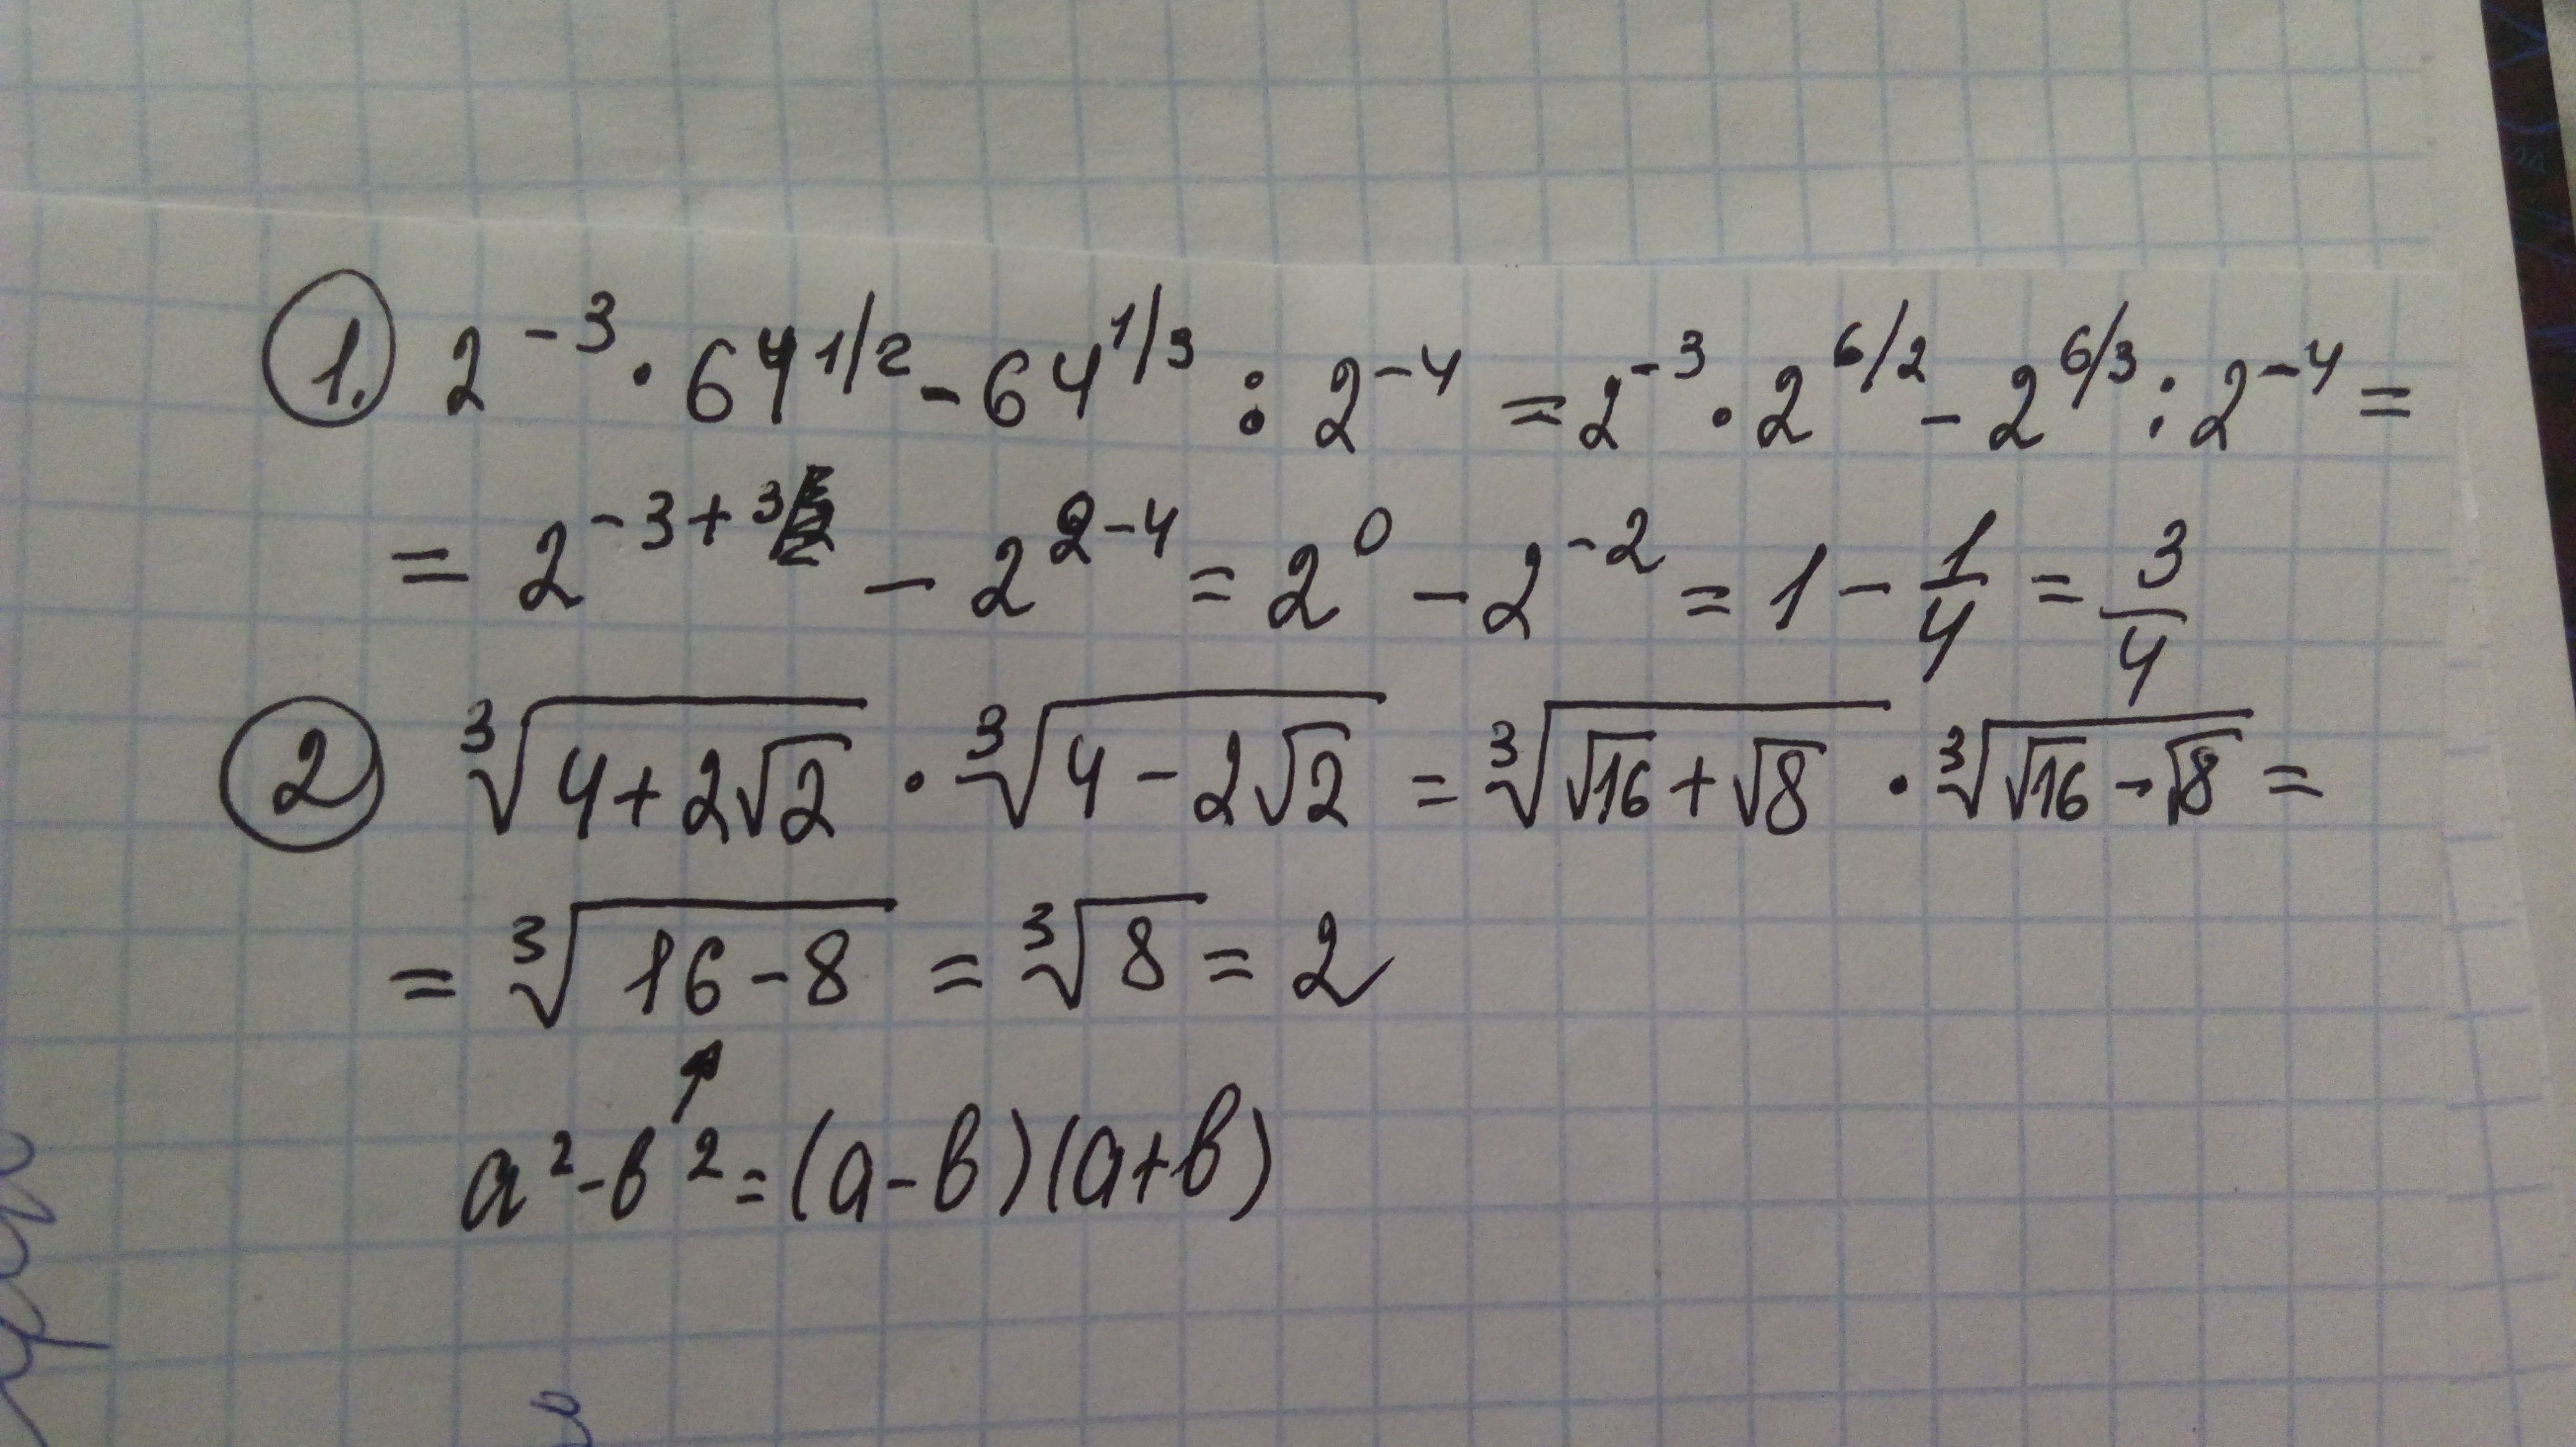 1. 2⁻³ · 64^1/2 - 64^1/3 : 2⁻⁴ = 2⁻³ · 2^6/2 - 2^6/3 : 2⁻⁴ =
= 2^-3+3 - 2^2-4 = 2⁰ - 2⁻² = 1 - 1/4 = 3/4
2 ∛(4+2√2) · ∛(4-2√2) = ∛(√16+√8) · ∛(√16-√8) =
= ∛(16-8) = ∛8 = 2
a²-b² = (a-b)(a+b)